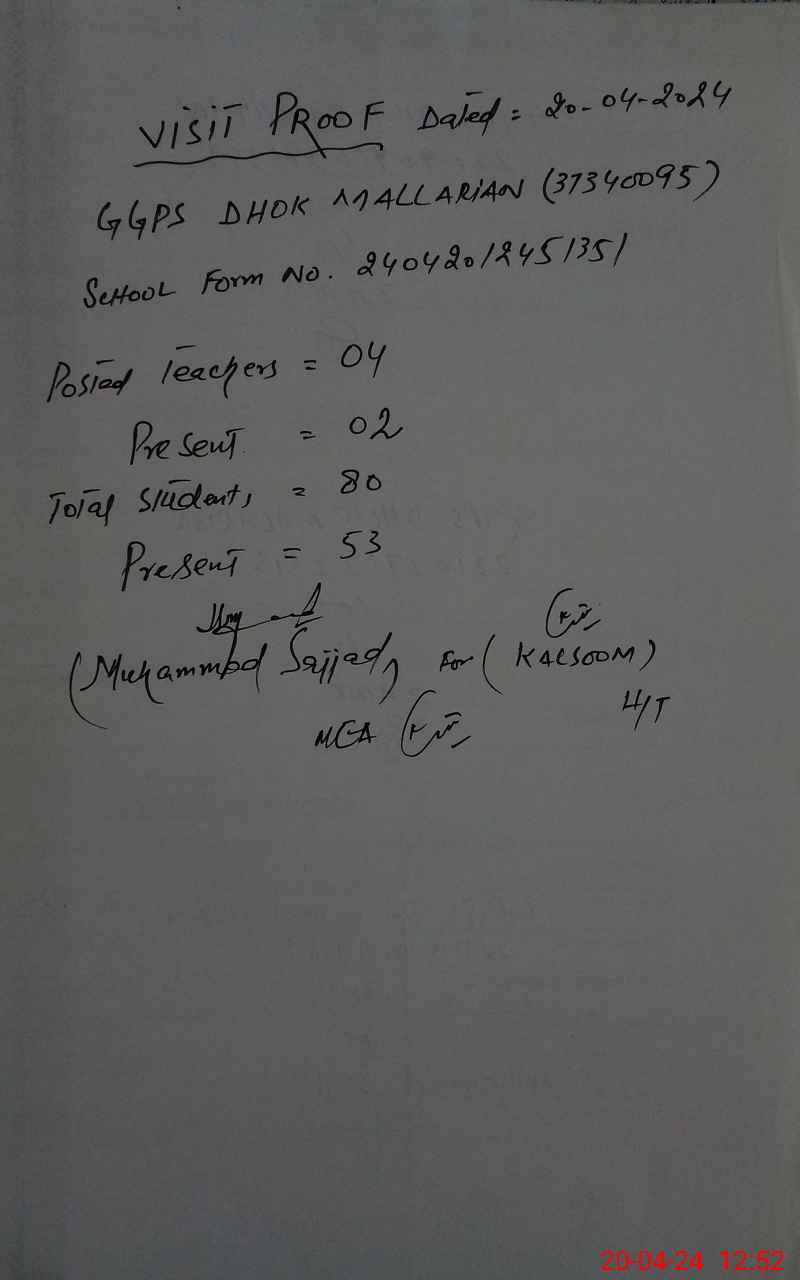 VISIT PROOF Dated = 20-04-2024
GGPS DHOK MALLARIAN (37340095)
SCHOOL Form No. 240420124513 51
Posted Teachers = 04
Present = 02
Total Students = 80
Present = 53
(Muhammad Sajjad) For (KALSOOM)
MEA H/T
20-04-24 12:52